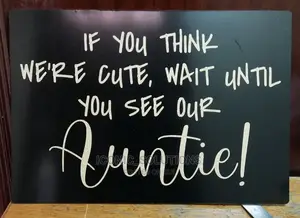 IF YOU THINK
WE'RE CUTE, WAIT UNTIL
YOU SEE OUR
Auntie!